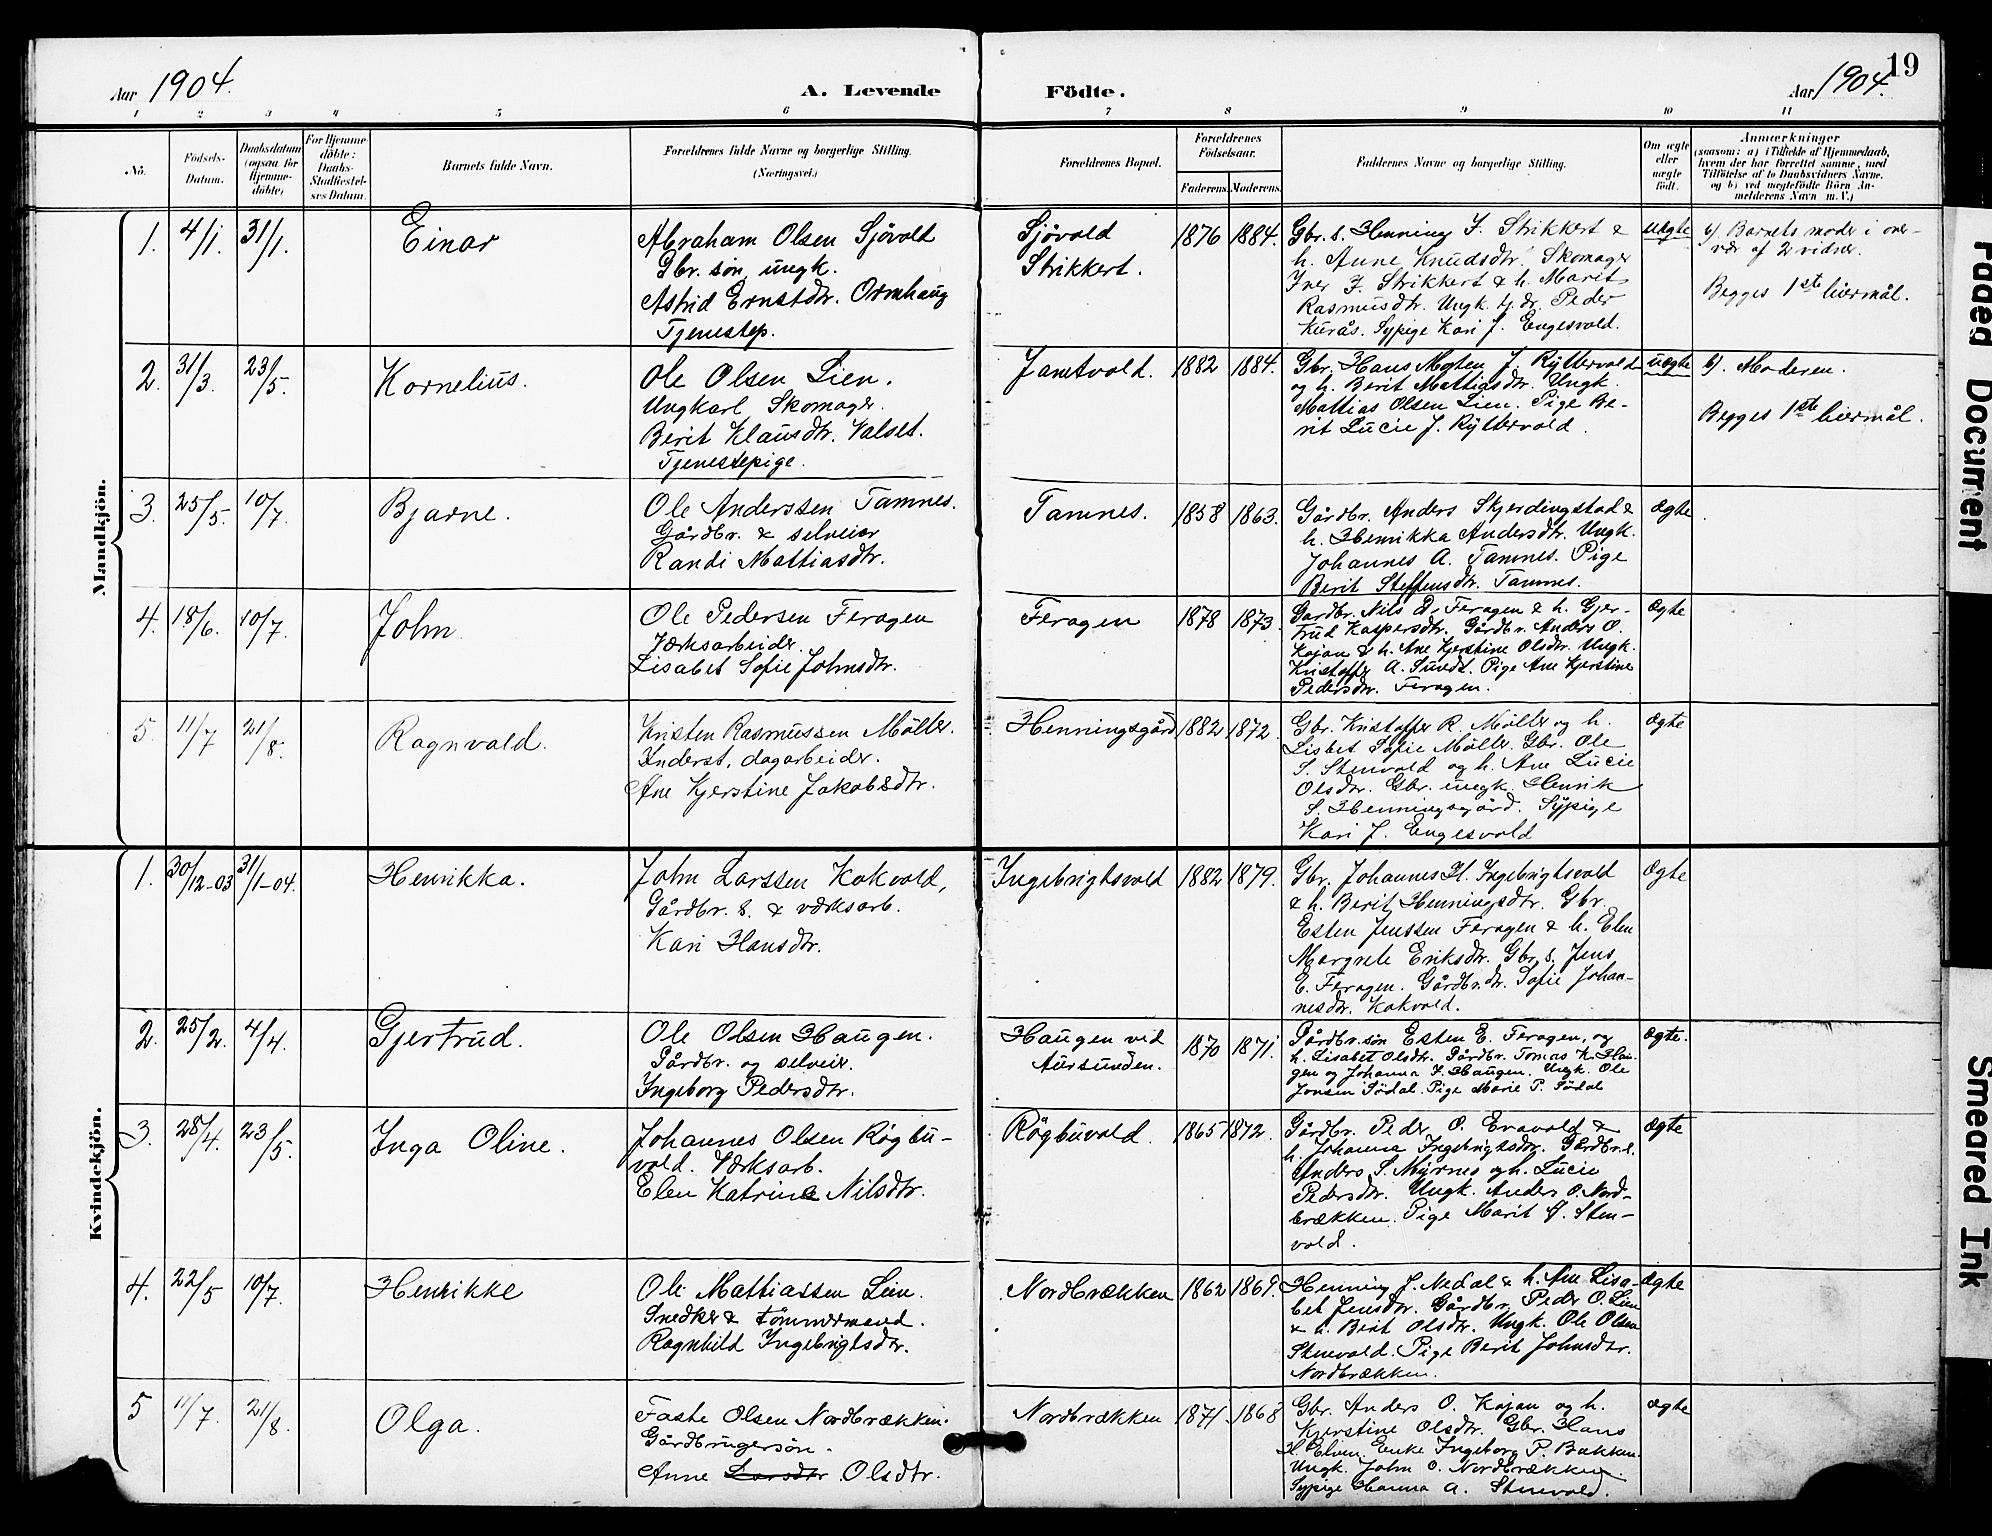 Aar 1904.
A. Levende
Födte.
Aar 1904.
19
1 2 3 4 5 6 7 8 9 10 11
No.
Födsels-
Datum.
Daabsdatum
(ogsaa for
Hjemme-
döbte)
For Hjemme-
döbte:
Daabs-
Stadfæstel-
ses Datum.
Barnets fulde Navn.
Forældrenes fulde Navne og borgerlige Stilling.
(Næringsvei.)
Forældrenes Bopæl.
Forældrenes
Födselsaar.
Faderens. Moderens.
Faddernes Navne og borgerlige Stilling.
Om ægte
eller
uægte
födt.
Anmærkninger
(saasom: a) i Tilfælde af Hjemmedaab,
hvem der har forrettet samme, med
Tilföielse af to Daabsvidners Navne.
og b) ved uægtefödte Börn An-
melderens Navn m. V.)
Mandkjön.
1. 4/1. 31/1. Einar
Abraham Olsen Sjövold
Gbr. søn, ungk.
Astrid Ernstdtr. Ormhaug
Tjenestep.
Sjövold
Strikkert.
1876 1884.
Gbr. s. Henning J. Strikkert &
h. Anne Knudsdtr. Skomager
Iver J. Strikkert & h. Marit
Rasmusdtr. Ungk. tj. dr. Peder
Kurås. Sypige Kari J. Engesvold.
uægte
b) Barnets moder i over-
vær af 2 vidner.
Begges 1ste leiermål.
2. 31/3. 23/5. Kornelius.
Ole Olsen Lien.
Ungkarl Skomager.
Berit Klausdtr. Valset.
Tjenestepige.
Jamtvold.
1882 1884.
Gbr. Hans Morten J. Ryttervold
og h. Berit Mattiasdtr. Ungk.
Mattias Olsen Lien. Pige Be-
rit Lucie J. Ryttervold.
uægte
b). Moderen.
Begges 1ste leiermål.
3. 25/5. 10/7. Bjarne.
Ole Anderssen Tamnes.
Gårdbr. & selveier
Randi Mattiasdtr.
Tamnes.
1858 1863.
Gårdbr. Anders Skjerdingstad &
h. Henrikka Andersdtr. Ungk.
Johannes A. Tamnes. Pige
Berit Steffensdtr. Tamnes.
Ægte
4. 18/6. 10/7. John
Ole Pedersen Feragen
Værksarbeider.
Lisabet Sofie Johnsdtr.
Feragen
1878 1873.
Gardbr. Nils P. Feragen & h. Gjer-
trud Kaspersdtr. Gårdbr. Anders O.
Kojan & h. Ane Kjerstine Olsdtr. Ungk.
Kristoffer A. Sundt. Pige Ane Kjerstine
Pedersdtr. Feragen.
Ægte
5. 11/7 21/8. Ragnvald.
Kristen Rasmussen Möller.
Inderst, dagarbeider.
Ane Kjerstine Jakobsdtr.
Henningsgård
1882 1872.
Gbr. Kristoffer R. Möller og h.
Lisbet Sofie Möller. Gbr. Ole
S. Stenvold og h. Ane Lucie
Olsdtr. Gbr. ungk. Henrik
S. Henningsgård. Sypige
Kari J. Engesvold
Ægte
Kvindekjön.
1. 30/12-03 31/1-04. Henrikka.
John Larssen Kokvold,
Gårdbr. s. & værksarb.
Kari Hansdtr.
Ingebrigtsvold
1882 1879.
Gbr. Johannes H. Ingebrigtsvold
& h. Berit Henningsdtr. Gbr.
Esten Jenssen Feragen & h. Elen
Margrete Eriksdtr. Gbr. s. Jens
E. Feragen. Gårdbr. dtr. Sofie Johan-
nesdtr. Kokvold.
Ægte
2. 25/2. 4/4. Gjertrud.
Ole Olsen Haugen.
Gårdbr. og selveier.
Ingeborg Pedersdtr.
Haugen ved
Aursunden.
1870 1871.
Gårdbr. søn Esten E. Feragen, og
h. Lisabet Olsdtr. Gårdbr. Tomas K. Hau-
gen og Johanna J. Haugen. Ungk. Ole
Jonsen Södal. Pige Marie P. Södal
Ægte.
3. 28/4. 23/5. Inga Oline.
Johannes Olsen Røgbu-
vold. Værksarb.
Elen Katrine Nilsdtr.
Rögbuvold.
1865 1872.
Gårdbr. Peder O. Evavold &
h. Johanna Ingebrigtsdtr. Gårdbr. s.
Anders S. Myrnes og h. Lucie
Pedersdtr. Ungk. Anders O. Nord-
brækken. Pige Marit J. Sten-
vold.
Ægte
4. 22/5 10/7. Henrikke
Ole Mattiassen Lien.
Snedker & tömmermand.
Ragnhild Ingebrigtsdtr.
Nordbrækken
1862 1869.
Henning J. Nedal & h. Ane Lisa-
bet Jensdtr. Gårdbr. Peder O. Lien
& h. Berit Olsdtr. Ungk. Ole Olsen
Stenvold. Pige Berit Johnsdtr.
Nordbrækken.
Ægte
5 11/7. 21/8. Olga.
Faste Olsen Nordbrækken.
Gårdbrugersøn.
Anne Larsdtr Olsdtr.
Nordbrækken
1871 1868
Gbr. Anders O. Kojan og h.
Kjerstine Olsdtr. Gbr. Hans
H. Elven. Enke Ingeborg P. Bakken.
Ungk. John O. Nordbrækken.
Sypige Hanna A. Stenvold.
Ægte
Faded Document
Smeared Ink